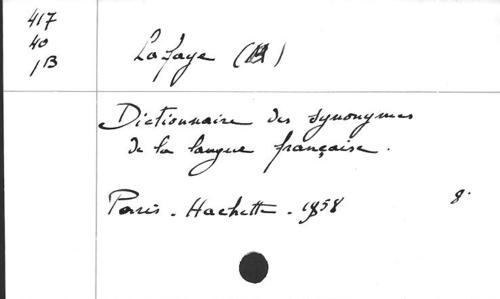 417
40
1B
Lafaye ( )
Dictionnaire des synonymes
de la langue française.
Paris - Hachette - 1858
8.